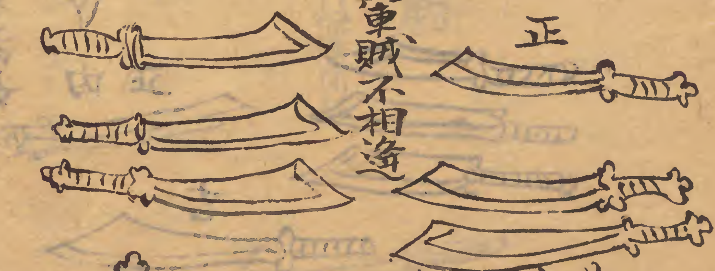 正
軍賊不相逢